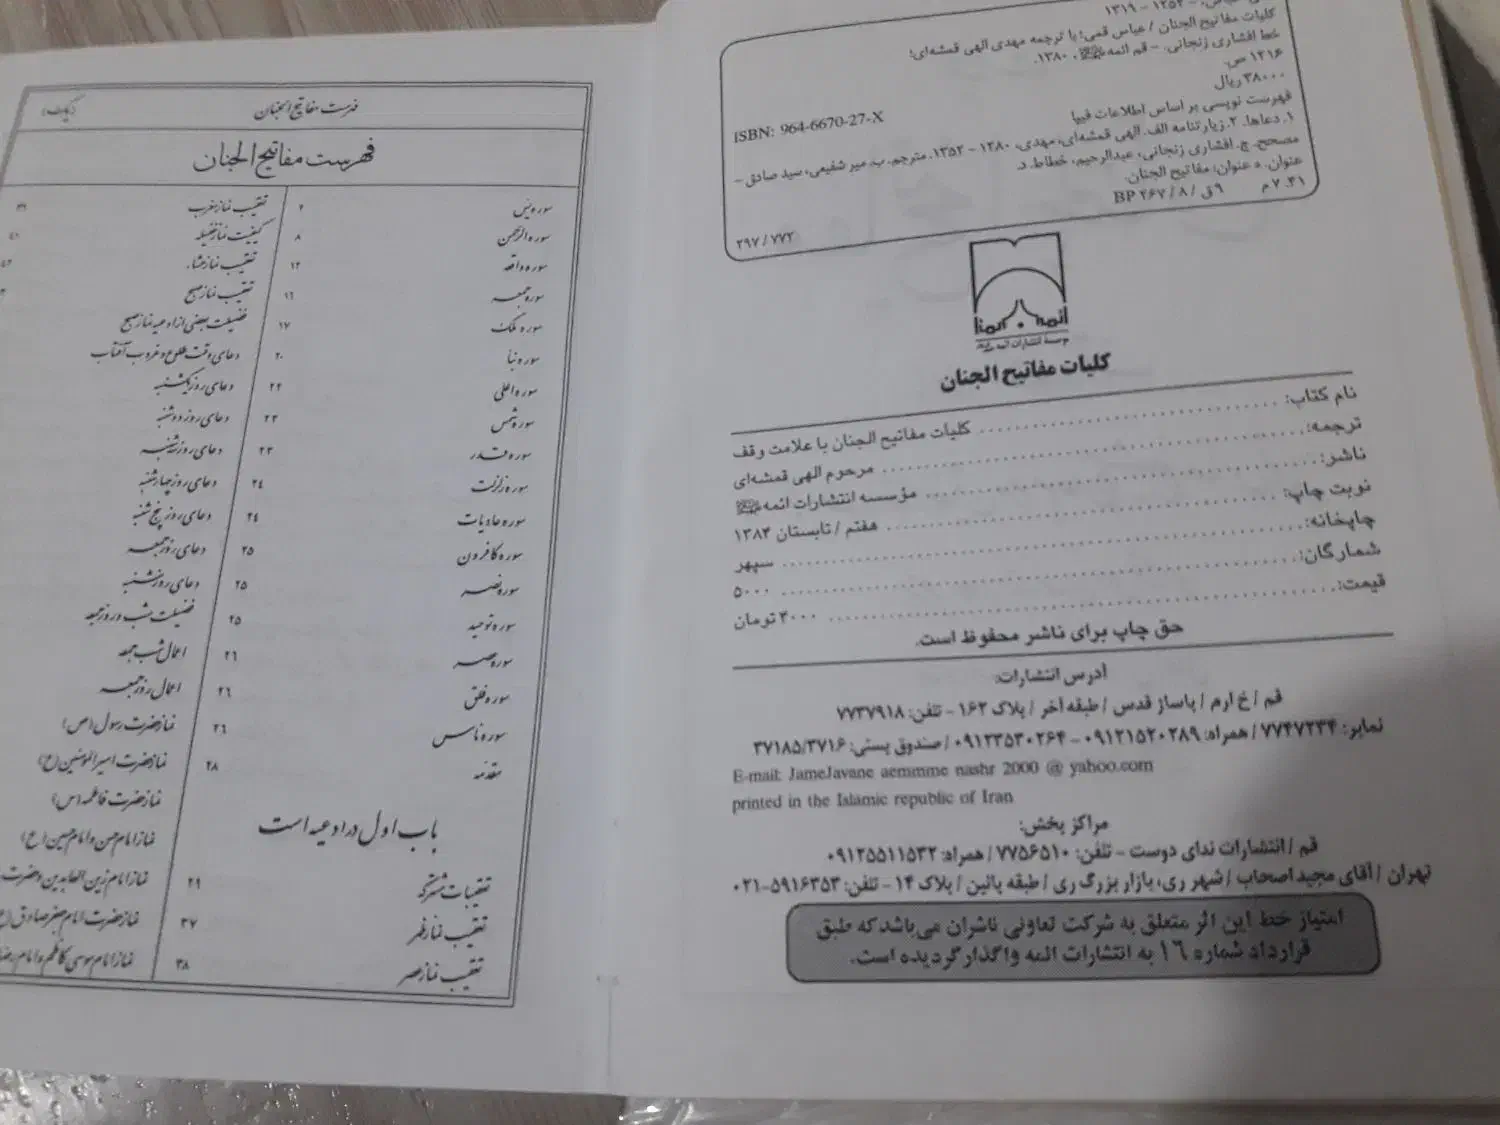 ۱۳۵۲ - ۱۳۱۹
کلیات مفاتیح الجنان / عباس قمی؛ با ترجمه مهدی الهی قمشه‌ای؛
خط افشاری زنجانی. - قم ائمه، ۱۳۸۰.
۱۲۱۶ ص.
۳۸۰۰۰ ریال
ISBN: 964-6670-27-X
فهرست نویسی بر اساس اطلاعات فیپا
۱. دعاها. ۲. زیارتنامه الف. الهی قمشه‌ای، مهدی، ۱۲۸۰ - ۱۳۵۲. مترجم. ب. میر شفیعی، سید صادق -
مصحح. ج. افشاری زنجانی، عبدالرحیم، خطاط. د.
عنوان. ه عنوان: مفاتیح الجنان.
۷۰۳۱ م ۹ق / ۸ / ۲۶۷ BP
۲۹۷ / ۷۷۲
ائمه
موسسهٔ انتشارات ائمه
کلیات مفاتیح الجنان
نام کتاب: کلیات مفاتیح الجنان با علامت وقف
ترجمه: مرحوم الهی قمشه‌ای
ناشر: مؤسسه انتشارات ائمه
نوبت چاپ: هفتم / تابستان ۱۳۸۴
چاپخانه: سپهر
شمارگان: ۵۰۰۰
قیمت: ۴۰۰۰ تومان
حق چاپ برای ناشر محفوظ است.
آدرس انتشارات:
قم / خ ارم / پاساژ قدس / طبقه آخر / پلاک ۱۶۲ - تلفن: ۷۷۳۷۹۱۸
نمابر: ۷۷۴۷۲۳۴ / همراه: ۰۹۱۲۱۵۲۰۲۸۹ - ۰۹۱۲۳۵۳۰۲۶۴ / صندوق پستی: ۳۷۱۸۵/۳۷۱۶
E-mail: JameJavane aemmme nashr 2000 @ yahoo.com
printed in the Islamic republic of Iran
مراکز پخش:
قم / انتشارات ندای دوست - تلفن: ۷۷۵۶۵۱۰ / همراه: ۰۹۱۲۵۵۱۱۵۳۲
تهران / آقای مجید اصحاب / شهر ری، بازار بزرگ ری / طبقه پائین / پلاک ۱۴ - تلفن: ۵۹۱۶۳۵۳-۰۲۱
امتیاز خط این اثر متعلق به شرکت تعاونی ناشران می‌باشد که طبق
قرارداد شماره ۱۶ به انتشارات ائمه واگذار گردیده است.
فهرست مفاتیح الجنان
فهرست مفاتیح الجنان
سوره یس ۲
سوره الرحمن ۸
سوره واقعه ۱۲
سوره جمعه ۱۶
سوره ملک ۱۷
سوره نبا ۲۰
سوره اعلی ۲۲
سوره شمس ۲۳
سوره قدر ۲۳
سوره زلزلت ۲۴
سوره عادیات ۲۴
سوره کافرون ۲۵
سوره نصر ۲۵
سوره توحید ۲۵
سوره عصر ۲۶
سوره فلق ۲۶
سوره ناس ۲۶
مقدمه ۲۸
باب اول در ادعیه است
تعقیبات مشترکه ۲۹
تعقیب نماز ظهر ۳۷
تعقیب نماز عصر ۳۸
تعقیب نماز مغرب ۳۹
کیفیت نماز غفیله ۴۱
تعقیب نماز عشاء
تعقیب نماز صبح
فضیلت بعضی از ادعیه نماز صبح
دعای وقت طلوع و غروب آفتاب
دعای روز یکشنبه
دعای روز دوشنبه
دعای روز سه‌شنبه
دعای روز چهارشنبه
دعای روز پنج شنبه
دعای روز جمعه
دعای روز شنبه
فضیلت شب و روز جمعه
اعمال شب جمعه
اعمال روز جمعه
نماز حضرت رسول (ص)
نماز حضرت امیرالمومنین (ع)
نماز حضرت فاطمه (س)
نماز امام حسن و امام حسین (ع)
نماز امام زین العابدین و حضرت
نماز حضرت امام جعفر صادق (ع
نماز امام موسی کاظم و امام رضا